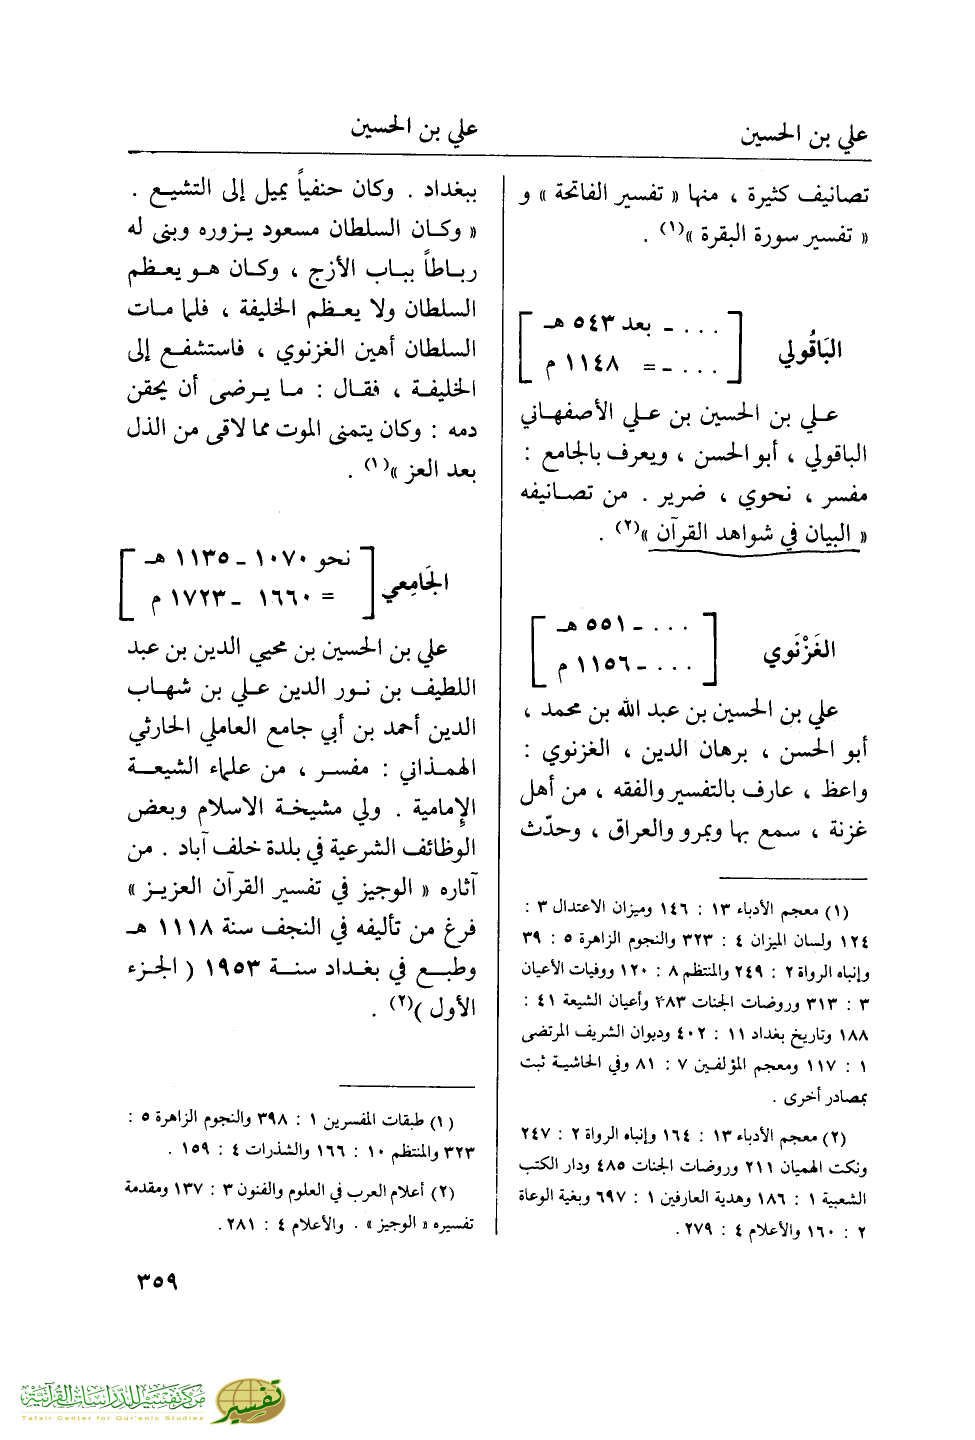 علي بن الحسين
علي بن الحسين
تصانيف كثيرة ، منها « تفسير الفاتحة » و
« تفسير سورة البقرة »(١) .
الباقُولي
[ . . . ـ بعد ٥٤٣ هـ
. . . ـ = ١١٤٨ م ]
علي بن الحسين بن علي الأصفهاني
الباقولي ، أبو الحسن ، ويعرف بالجامع :
مفسر ، نحوي ، ضرير . من تصانيفه
« البيان في شواهد القرآن »(٢) .
الغَزْنَوي
[ . . . ـ ٥٥١ هـ
. . . ـ ١١٥٦ م ]
علي بن الحسين بن عبد الله بن محمد ،
أبو الحسن ، برهان الدين ، الغزنوي :
واعظ ، عارف بالتفسير والفقه ، من أهل
غزنة ، سمع بها وبمرو والعراق ، وحدّث
(١) معجم الأدباء ١٣ : ١٤٦ وميزان الاعتدال ٣ :
١٢٤ ولسان الميزان ٤ : ٣٢٣ والنجوم الزاهرة ٥ : ٣٩
وإنباه الرواة ٢ : ٢٤٩ والمنتظم ٨ : ١٢٠ ووفيات الأعيان
٣ : ٣١٣ وروضات الجنات ٤٨٣ وأعيان الشيعة ٤١ :
١٨٨ وتاريخ بغداد ١١ : ٤٠٢ وديوان الشريف المرتضى
١ : ١١٧ ومعجم المؤلفين ٧ : ٨١ وفي الحاشية ثبت
بمصادر أخرى .
(٢) معجم الأدباء ١٣ : ١٦٤ وإنباه الرواة ٢ : ٢٤٧
ونكت الهميان ٢١١ وروضات الجنات ٤٨٥ ودار الكتب
الشعبية ١ : ١٨٦ وهدية العارفين ١ : ٦٩٧ وبغية الوعاة
٢ : ١٦٠ والأعلام ٤ : ٢٧٩ .
ببغداد . وكان حنفياً يميل إلى التشيع .
« وكان السلطان مسعود يزوره وبنى له
رباطاً بباب الأزج ، وكان هو يعظم
السلطان ولا يعظم الخليفة ، فلما مات
السلطان أهين الغزنوي ، فاستشفع إلى
الخليفة ، فقال : ما يرضى أن يحقن
دمه : وكان يتمنى الموت مما لاقى من الذل
بعد العز »(١) .
الجَامِعي
[ نحو ١٠٧٠ ـ ١١٣٥ هـ
= ١٦٦٠ ـ ١٧٢٣ م ]
علي بن الحسين بن محيي الدين بن عبد
اللطيف بن نور الدين علي بن شهاب
الدين أحمد بن أبي جامع العاملي الحارثي
الهمذاني : مفسر ، من علماء الشيعة
الإمامية . ولي مشيخة الاسلام وبعض
الوظائف الشرعية في بلدة خلف آباد . من
آثاره « الوجيز في تفسير القرآن العزيز »
فرغ من تأليفه في النجف سنة ١١١٨ هـ
وطبع في بغداد سنة ١٩٥٣ ( الجزء
الأول )(٢) .
(١) طبقات المفسرين ١ : ٣٩٨ والنجوم الزاهرة ٥ :
٣٢٣ والمنتظم ١٠ : ١٦٦ والشذرات ٤ : ١٥٩ .
(٢) أعلام العرب في العلوم والفنون ٣ : ١٣٧ ومقدمة
تفسيره « الوجيز » . والأعلام ٤ : ٢٨١ .
٣٥٩
مركز تفسير للدراسات القرآنية
Tafsir Center for Qur'anic Studies
تفسير